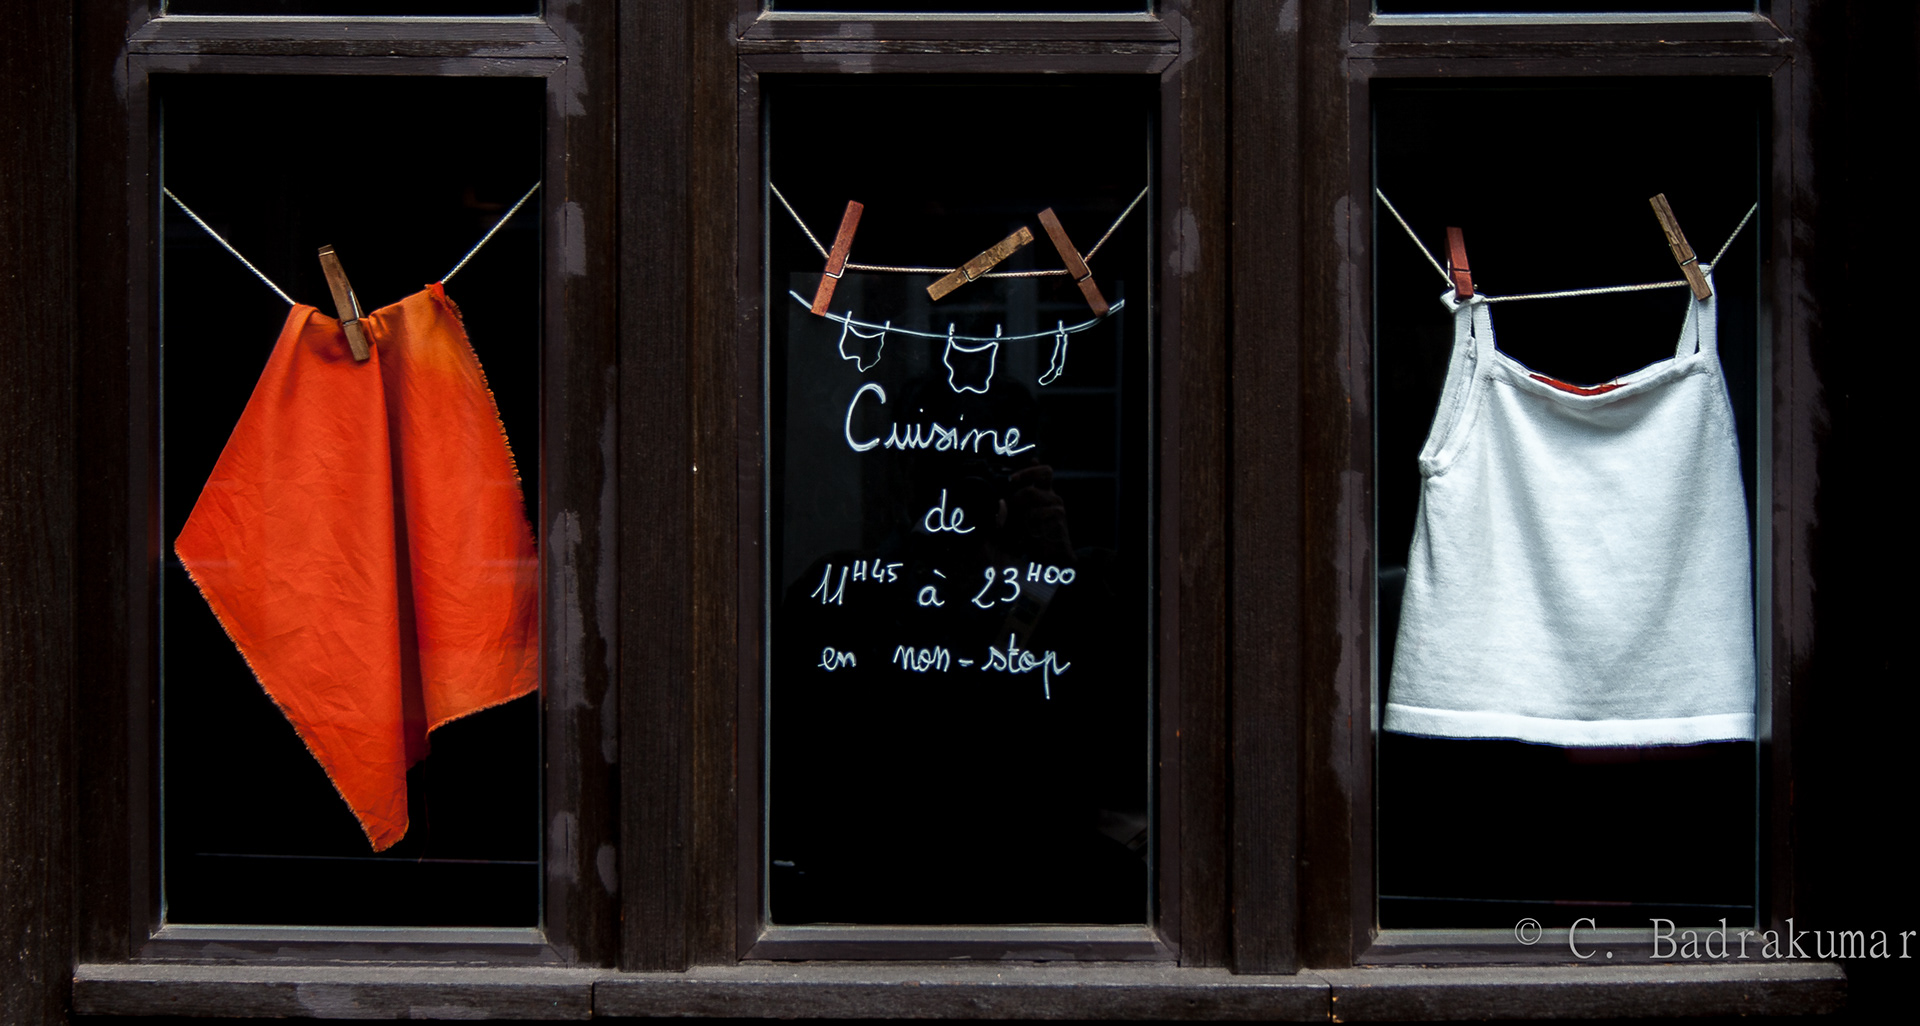 Cuisine
de
11H45 à 23H00
en non-stop
© C. Badrakumar